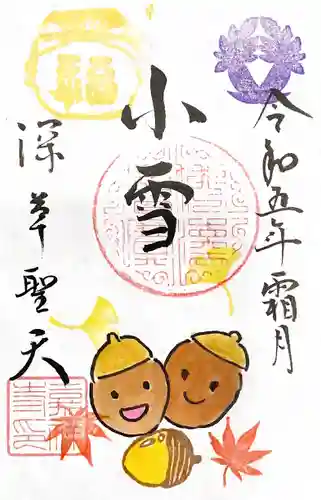 令和五年霜月
小雪
深草聖天
福